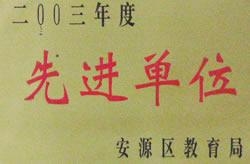 二00三年度
先进单位
安源区教育局